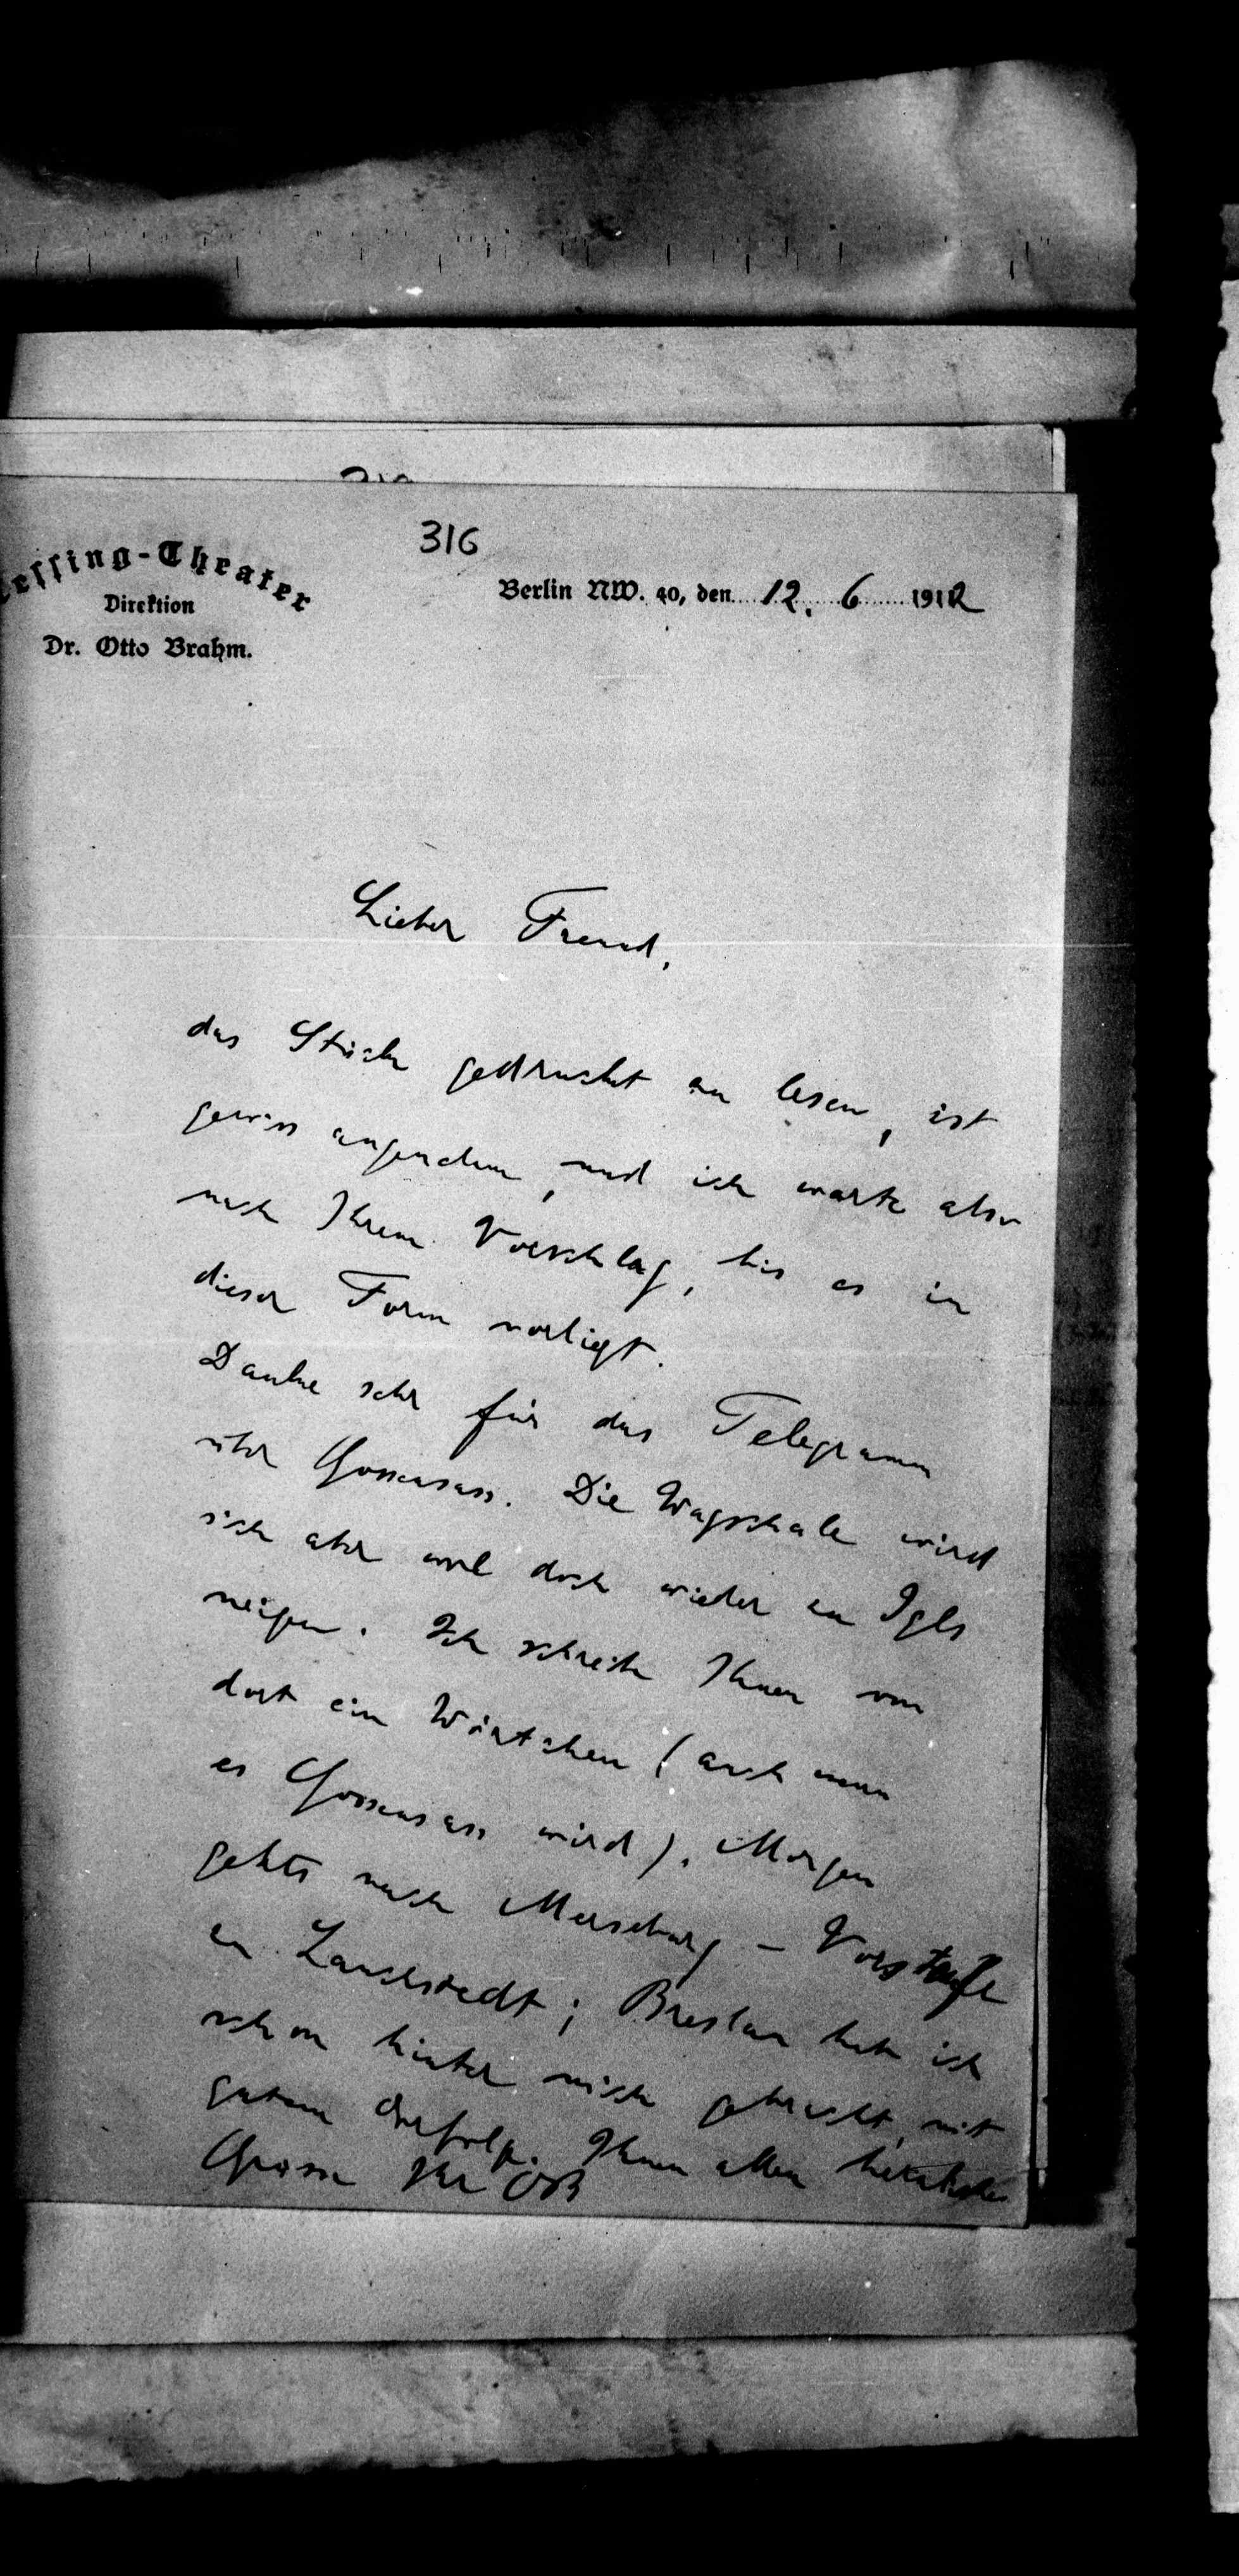 316
Lessing-Theater
Direktion
Dr. Otto Brahm.
Berlin NW. 40, den 12. 6 1912
Lieber Freund,
das Stück gedruckt zu lesen, ist
gewiss angenehm, und ich warte also
nach Ihrem Vorschlag, bis es in
dieser Form vorliegt.
Danke sehr für das Telegramm
über Gossensass. Die Wagschale wird
sich aber wol doch wieder zu Igls
neigen. Ich schreibe Ihnen von
dort ein Wörtchen (auch wenn
es Gossensass wird). Morgen
gehts nach Merseburg – Vorstufe
zu Lauchstedt; Breslau habe ich
schon hinter mich gebracht, mit
gutem Erfolg. Ihnen allen herzliche
Grüsse Ihr OB